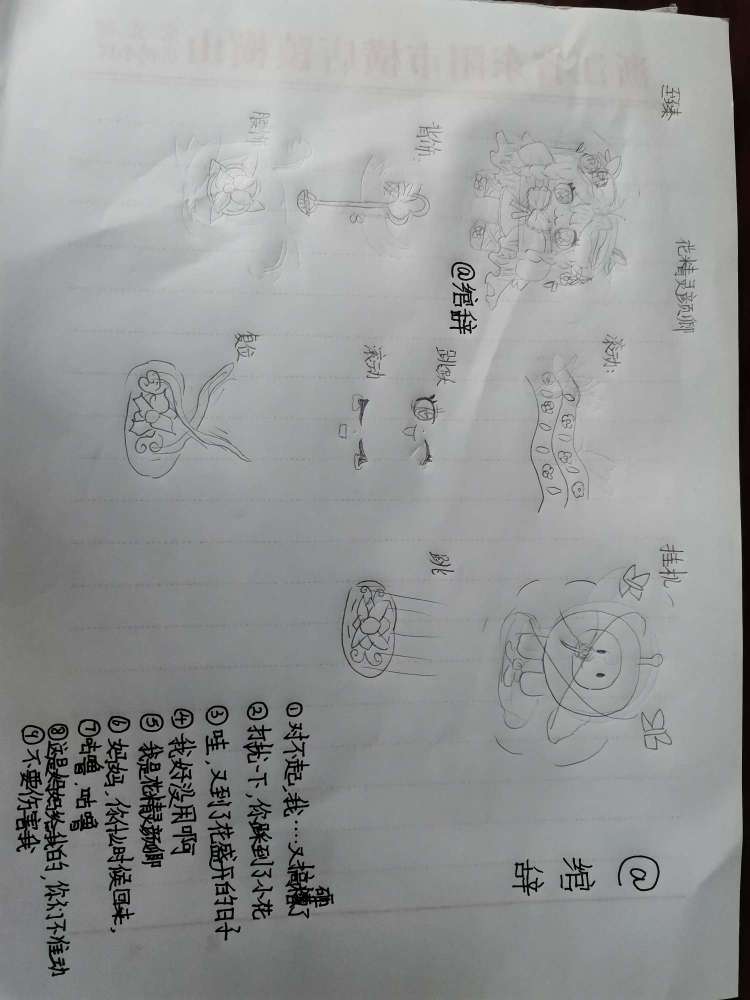 至臻
花精灵颜卿
背饰:
脸饰
@绾辞
滚动:
跳跃
滚动
复位
挂机
跳
@绾辞
①对不起,我…又搞砸了
②打扰一下,你踩到了小花
③哇,又到了花盛开的日子
④我好没用啊
⑤我是花精灵颜卿
⑥妈妈,你什么时候回来,
⑦咕噜,咕噜
⑧这是妈妈给我的,你们不准动
⑨不要伤害我